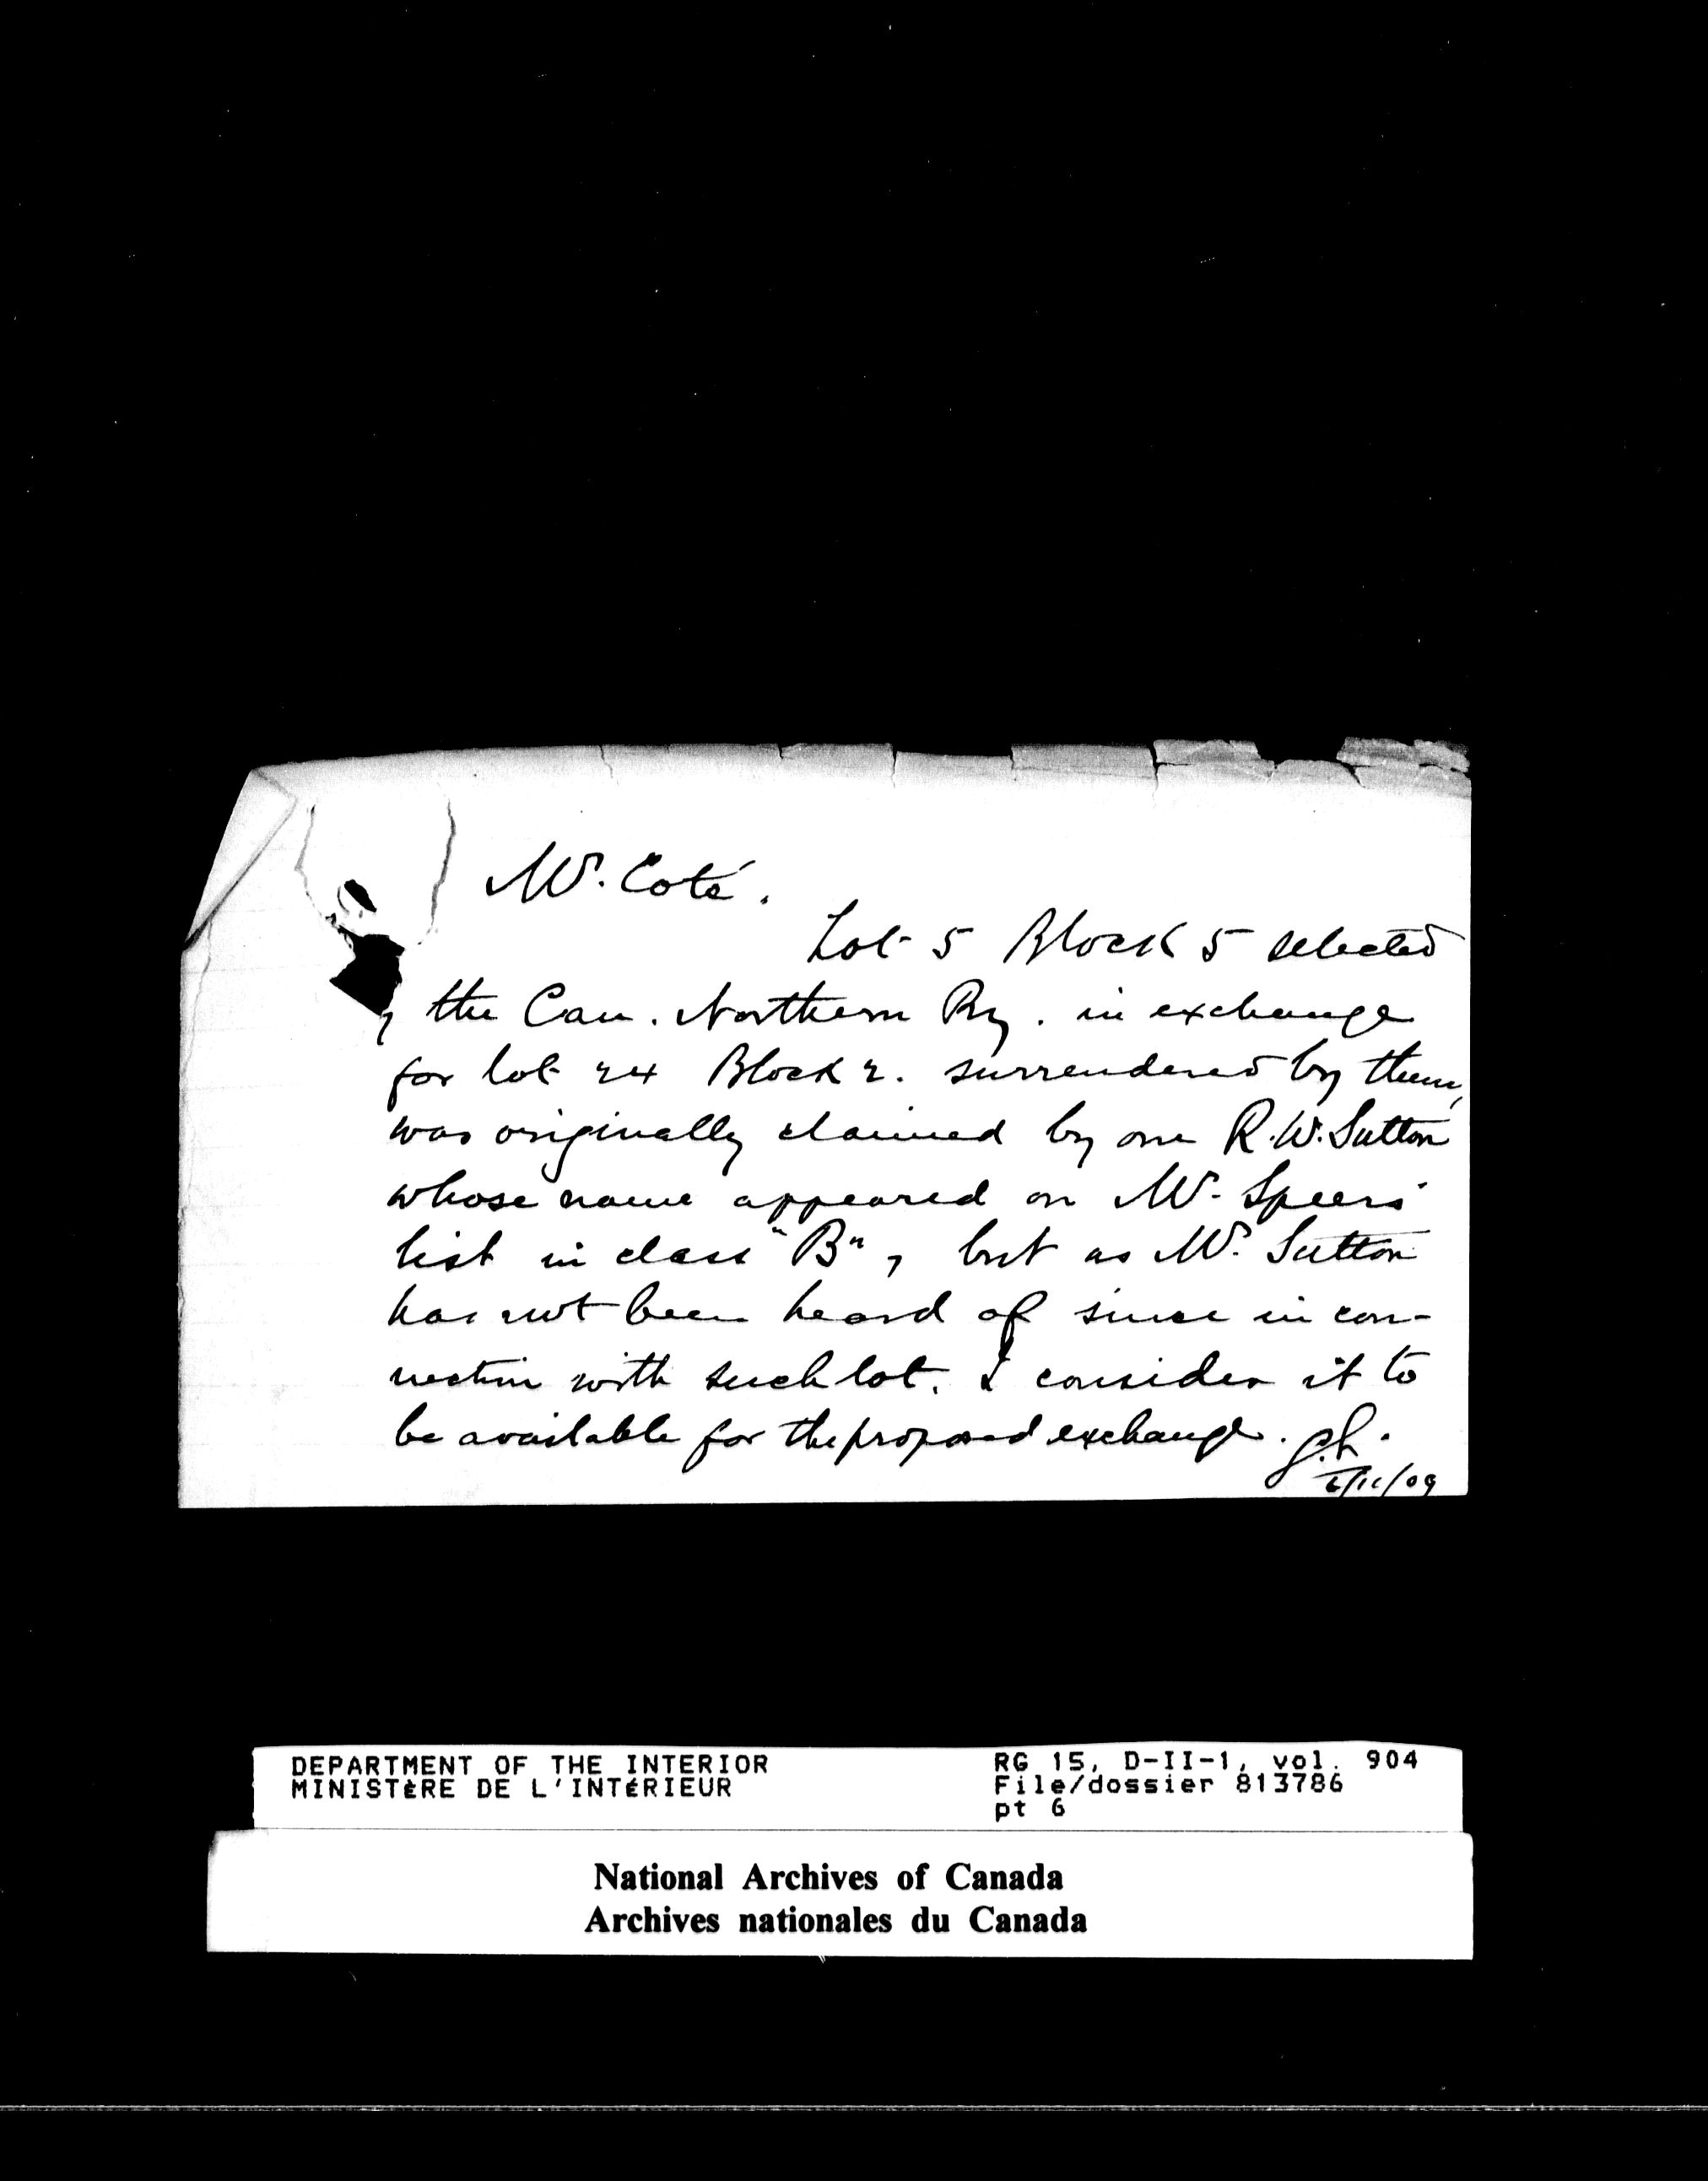 Mr. Coté.
Lot 5 Block 5 selected
y the Can. Northern Ry. in exchange
for lot 24 Block 2. surrendered by them,
was originally claimed by one R. W. Sutton
whose name appeared on Mr. Speers'
list in class "B", but as Mr. Sutton
has not been heard of since in con-
nection with such lot. I consider it to
be available for the proposed exchange.
DEPARTMENT OF THE INTERIOR
MINISTÈRE DE L'INTÉRIEUR
RG 15, D-II-1, vol. 904
File/dossier 813786
pt 6
National Archives of Canada
Archives nationales du Canada